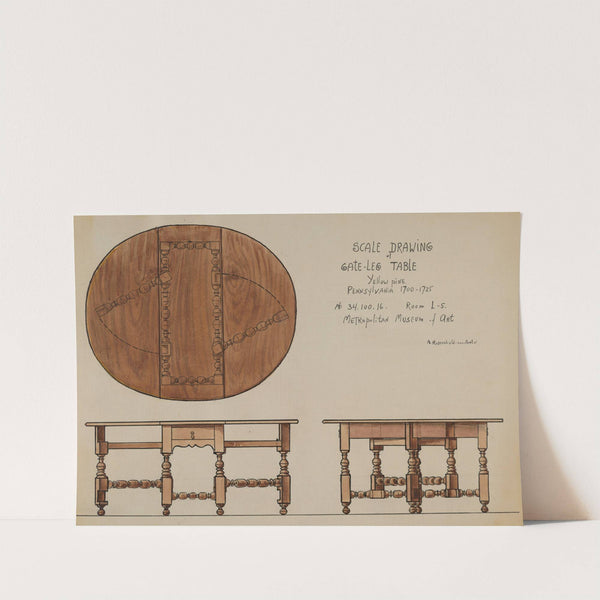 SCALE DRAWING
of
GATE-LEG TABLE
Yellow pine
PENNSYLVANIA 1700-1725
№ 34.100.16. ROOM L-5.
METROPOLITAN MUSEUM of ART